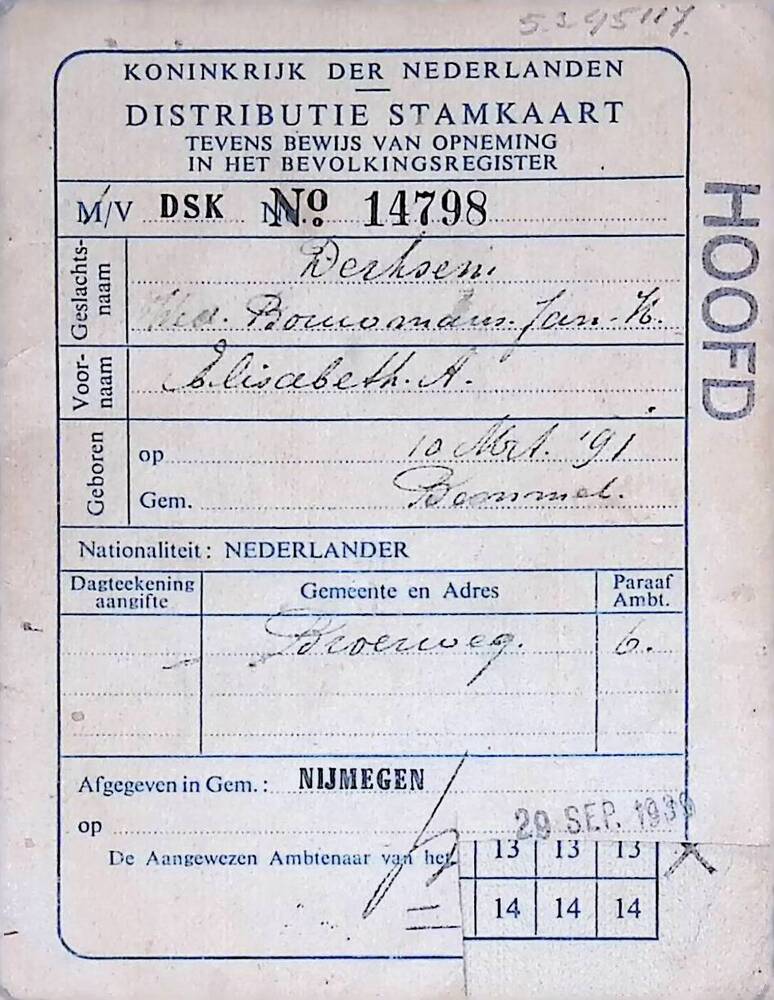 5.295117.
KONINKRIJK DER NEDERLANDEN
DISTRIBUTIE STAMKAART
TEVENS BEWIJS VAN OPNEMING
IN HET BEVOLKINGSREGISTER
M/V DSK No 14798
HOOFD
Geslachts-
naam
Derksen.
Wed. Bouwmans. Jan. H.
Voor-
naam
Elisabeth. A.
Geboren
op 10 Mrt. '91
Gem. Bemmel.
Nationaliteit: NEDERLANDER
Dagteekening
aangifte
Gemeente en Adres
Paraaf
Ambt.
Broerweg. 6.
Afgegeven in Gem.: NIJMEGEN
op 29 SEP. 1939
De Aangewezen Ambtenaar van het
13 13 13
14 14 14